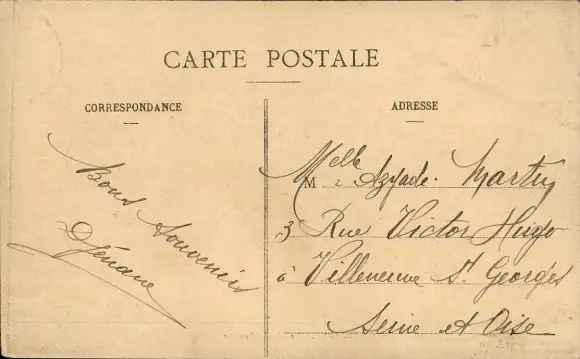 CARTE POSTALE
CORRESPONDANCE
Bons souvenirs
ADRESSE
Melle Azyade Martry
3 Rue Victor Hugo
à Villeneuve St Georges
Seine et Oise